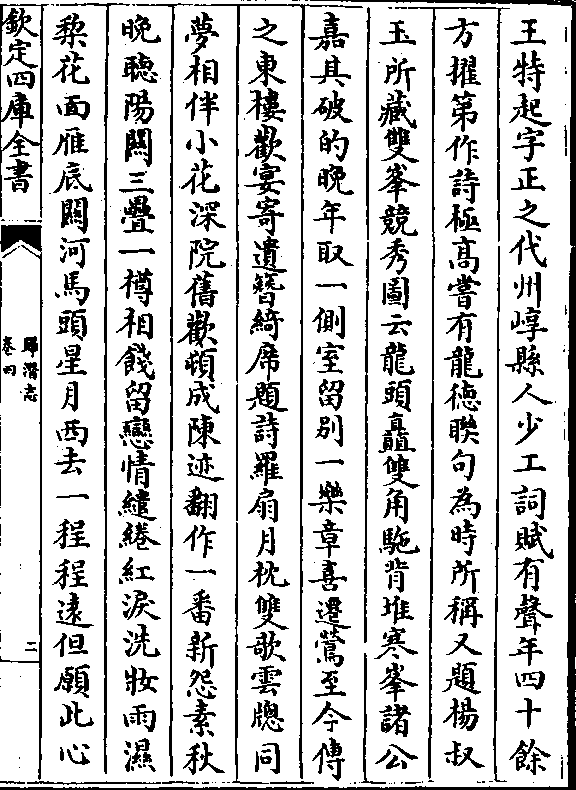 王特起字正之代州崞縣人少工詞賦有聲年四十餘
方擢第作詩極高嘗有龍徳聨句為時所稱又題楊叔
玉所藏雙峯競秀圖云龍頭矗雙角駞背堆寒峯諸公
嘉其破的晚年取一側室留别一樂章喜遷鶯至今傳
之東樓歡宴寄遺簪綺席題詩羅扇月枕雙歌雲牕同
夢相伴小花深院舊歡頓成陳迹翻作一番新怨素秋
晚聴陽闗三疊一樽相餞留戀情繾綣紅淚洗妝雨濕
棃花面雁底闗河馬頭星月西去一程程逺但願此心
欽定四庫全書
歸潛志
卷四
二